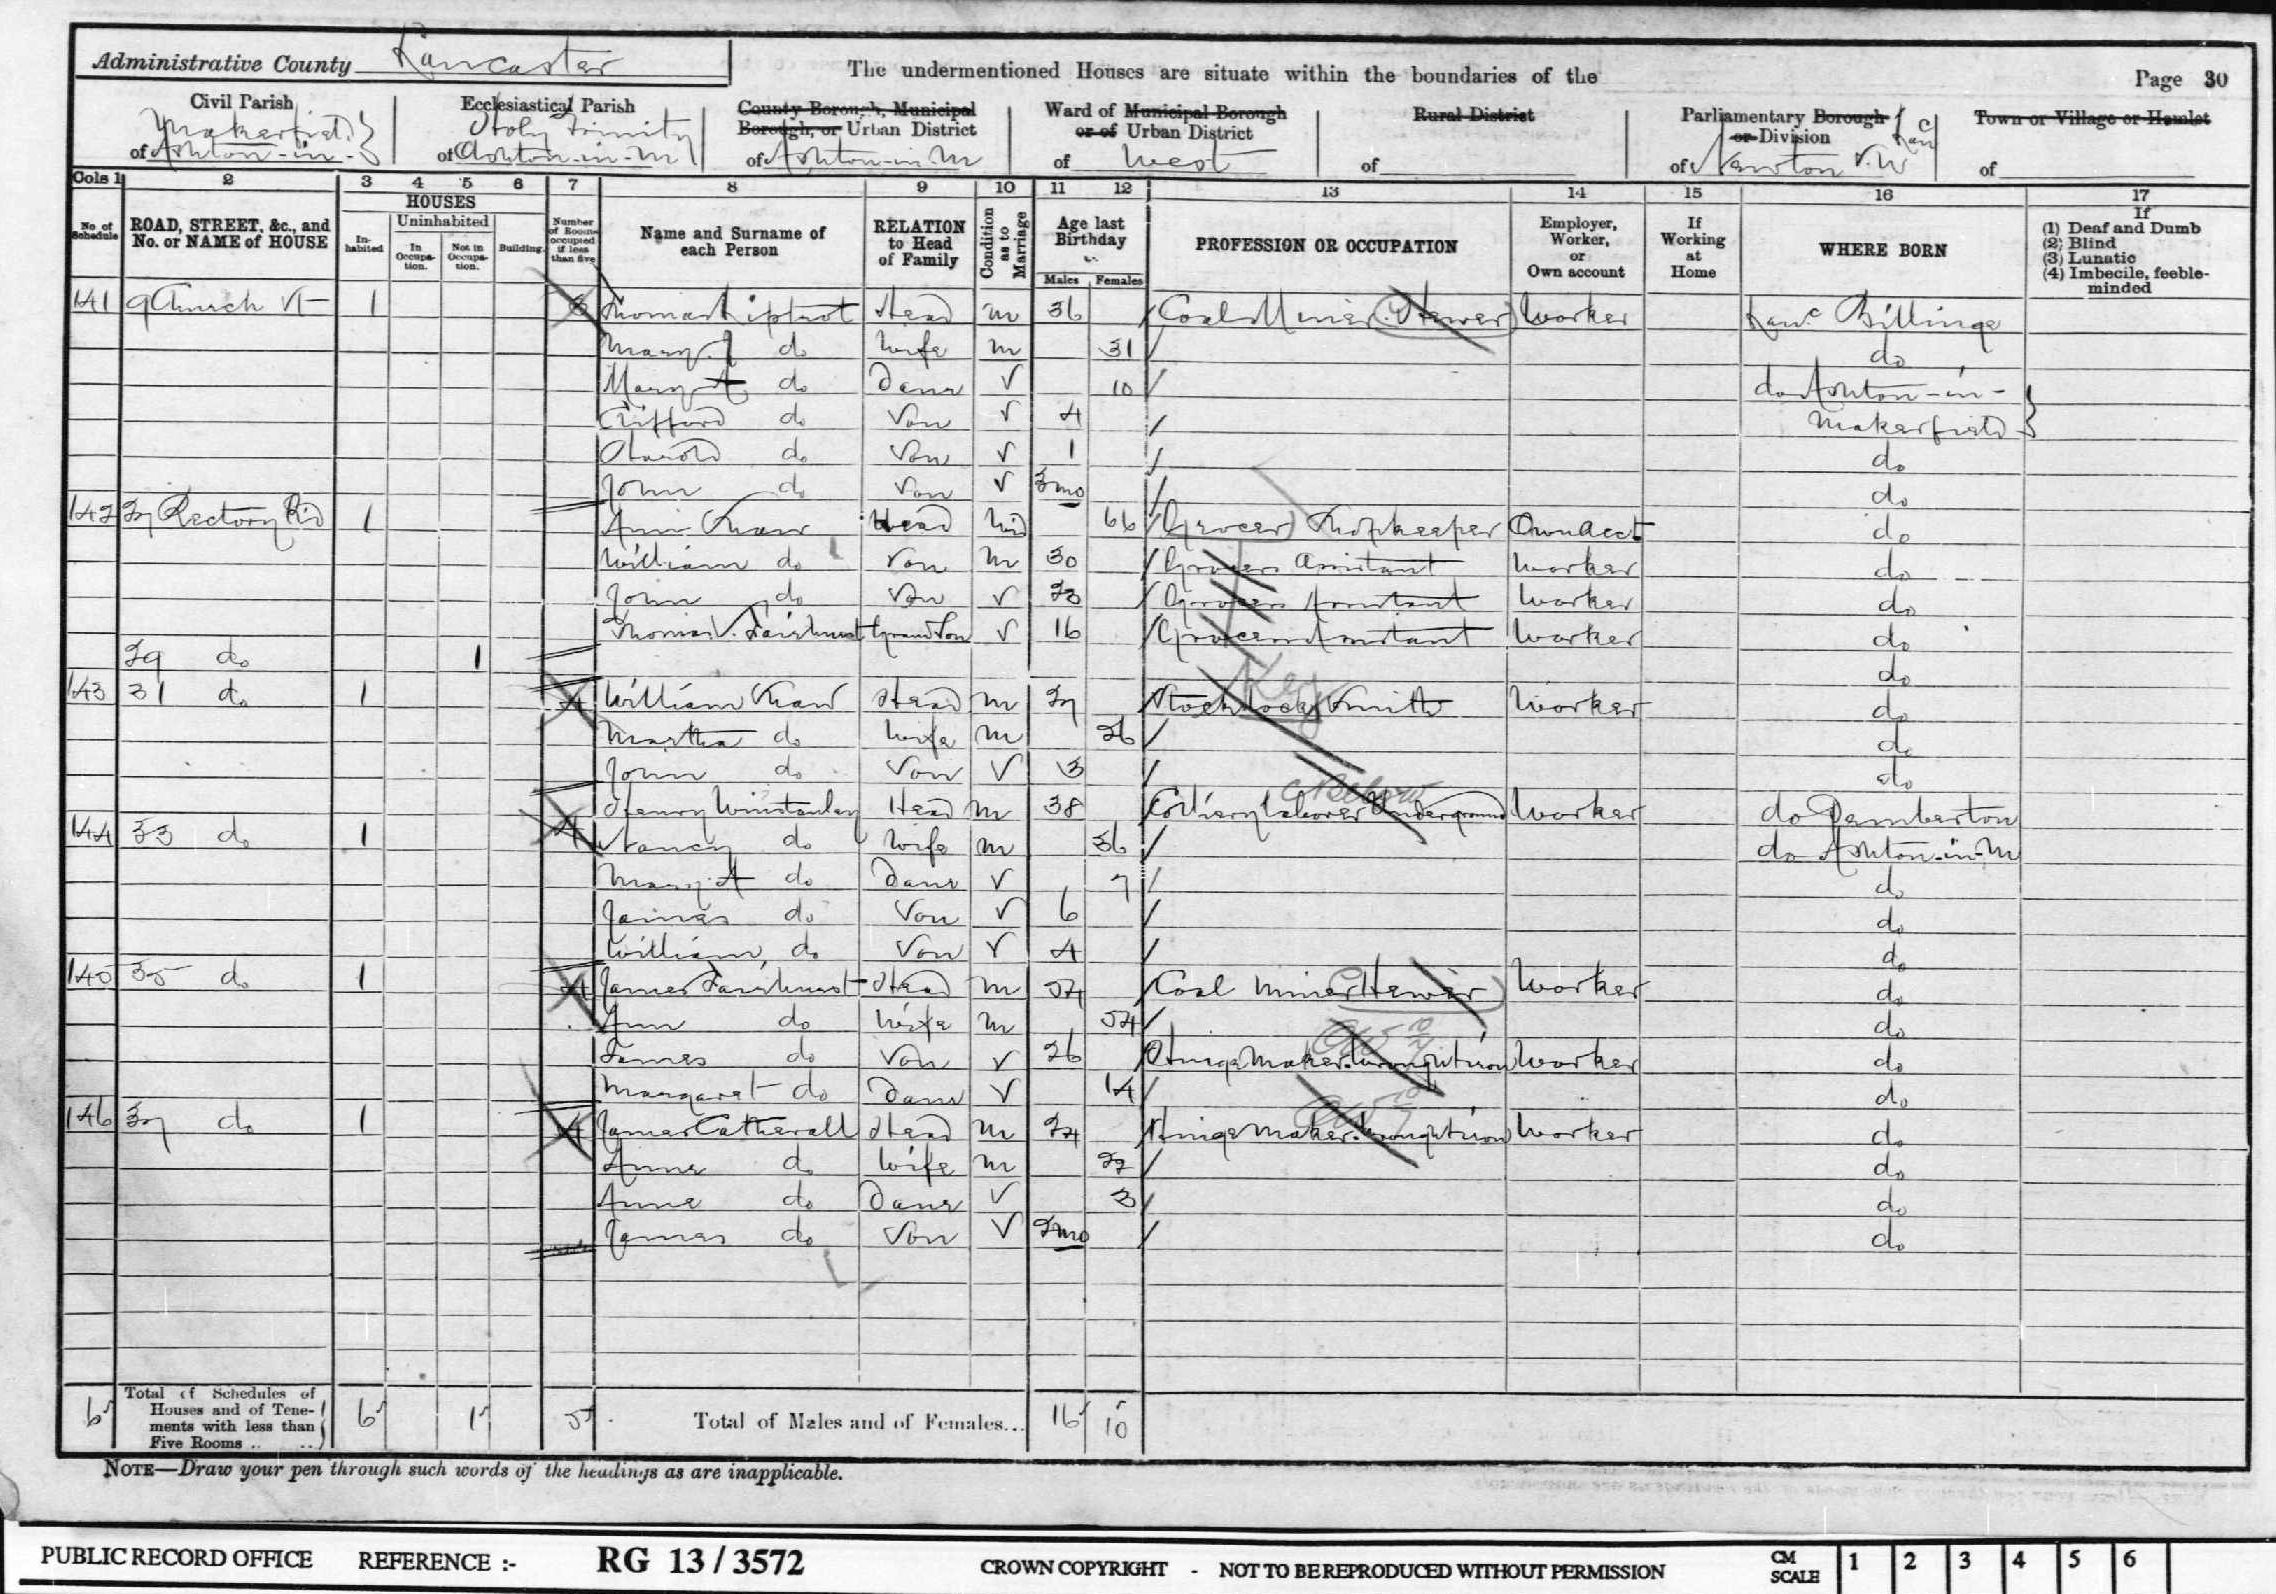 Administrative County Lancaster
The undermentioned Houses are situate within the boundaries of the
Page 30
Civil Parish
of Ashton-in-Makerfield
Ecclesiastical Parish
of Holy Trinity Ashton-in-M
County Borough, Municipal Borough, or Urban District
of Ashton-in-M
Ward of Municipal Borough or of Urban District
of West
Rural District
of
Parliamentary Borough or Division
of Newton S.W Lanc
Town or Village or Hamlet
of
Cols 1 2 3 4 5 6 7 8 9 10 11 12 13 14 15 16 17
No. of Schedule
ROAD, STREET, &c., and No. or NAME of HOUSE
HOUSES
Inhabited
Uninhabited
In Occupation.
Not in Occupation.
Building.
Number of Rooms occupied if less than five
Name and Surname of each Person
RELATION to Head of Family
Condition as to Marriage
Age last Birthday
Males Females
PROFESSION OR OCCUPATION
Employer, Worker, or Own account
If Working at Home
WHERE BORN
If
(1) Deaf and Dumb
(2) Blind
(3) Lunatic
(4) Imbecile, feeble-minded
141 9 Church St 1 Thomas Liptrot Head M 36 Coal Miner (Hewer) Worker Lanc Billinge
Mary J do Wife M 31 do
Mary A do Daur S 10 do Ashton-in-
Clifford do Son S 4 Makerfield
Harold do Son S 1 do
John do Son S 3mo do
142 27 Rectory Rd 1 Ann Shaw Head Wid 66 (Grocer) Shopkeeper Own acct do
William do Son M 30 Grocers Assistant Worker do
John do Son S 23 Grocers Assistant Worker do
Thomas S. Fairhurst Grandson S 16 Grocers Assistant Worker do
29 do 1 do
143 31 do 1 4 William Shaw Head M 27 Stock Lock Smith Worker do
Key
Martha do Wife M 26 do
John do Son S 3 do
Henry Winstanley Head M 38 Colliery Laborer Underground Worker do Pemberton
Below
144 33 do 1 4 Nancy do Wife M 36 do Ashton-in-M
Mary A do Daur S 7 do
James do Son S 6 do
William do Son S 4 do
145 35 do 1 4 James Fairhurst Head M 54 Coal Miner (Hewer) Worker do
Ann do Wife M 54 do
James do Son S 26 Hinge Maker. Wrought iron Worker do
Margaret do Daur S 14 do
146 37 do 1 4 James Catherall Head M 24 Hinge Maker. Wrought iron Worker do
Anne do Wife M 22 do
Anne do Daur S 3 do
James do Son S 2mo do
6 Total of Schedules of Houses and of Tenements with less than Five Rooms 6 1 5 Total of Males and of Females... 16 10
NOTE—Draw your pen through such words of the headings as are inapplicable.
PUBLIC RECORD OFFICE REFERENCE :- RG 13 / 3572 CROWN COPYRIGHT - NOT TO BE REPRODUCED WITHOUT PERMISSION CM SCALE 1 2 3 4 5 6